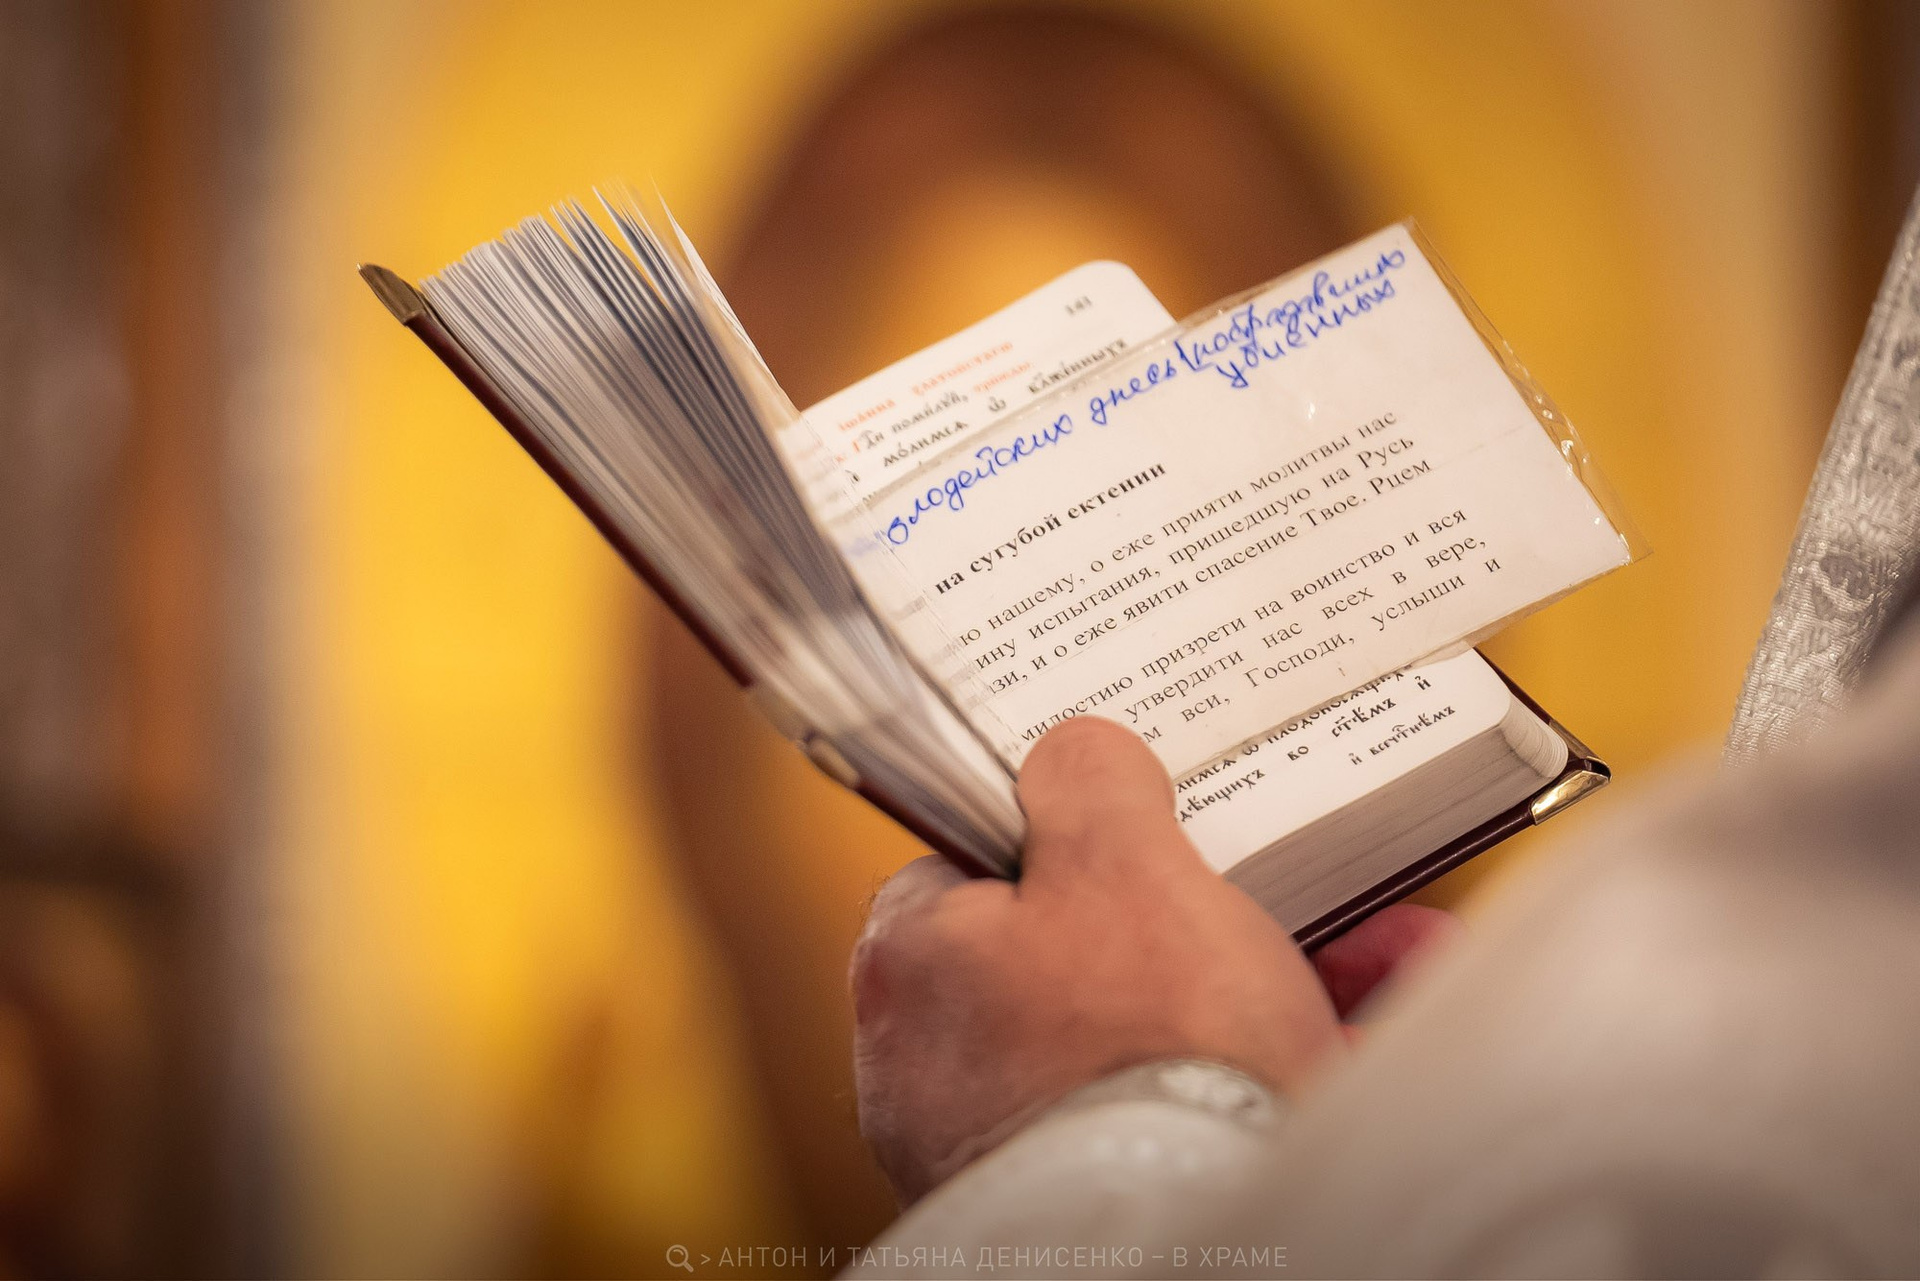 143
Їѡа́нна златоꙋстагѡ
мо́лимсѧ ѡ҆ бл҃же́нныхъ
злодейских днесь пострадавших
убиенных
на сугубой ектении
нашему, о еже прияти молитвы нас
испытания, пришедшую на Русь
и о еже явити спасение Твое. Рцем
милостию призрети на воинство и вся
утвердити нас всех в вере,
вси, Господи, услыши и
ѡ
во ст҃ѣ́мъ и҆
и҆ всечⷭ҇тнѣ́мъ
АНТОН И ТАТЬЯНА ДЕНИСЕНКО – В ХРАМЕ